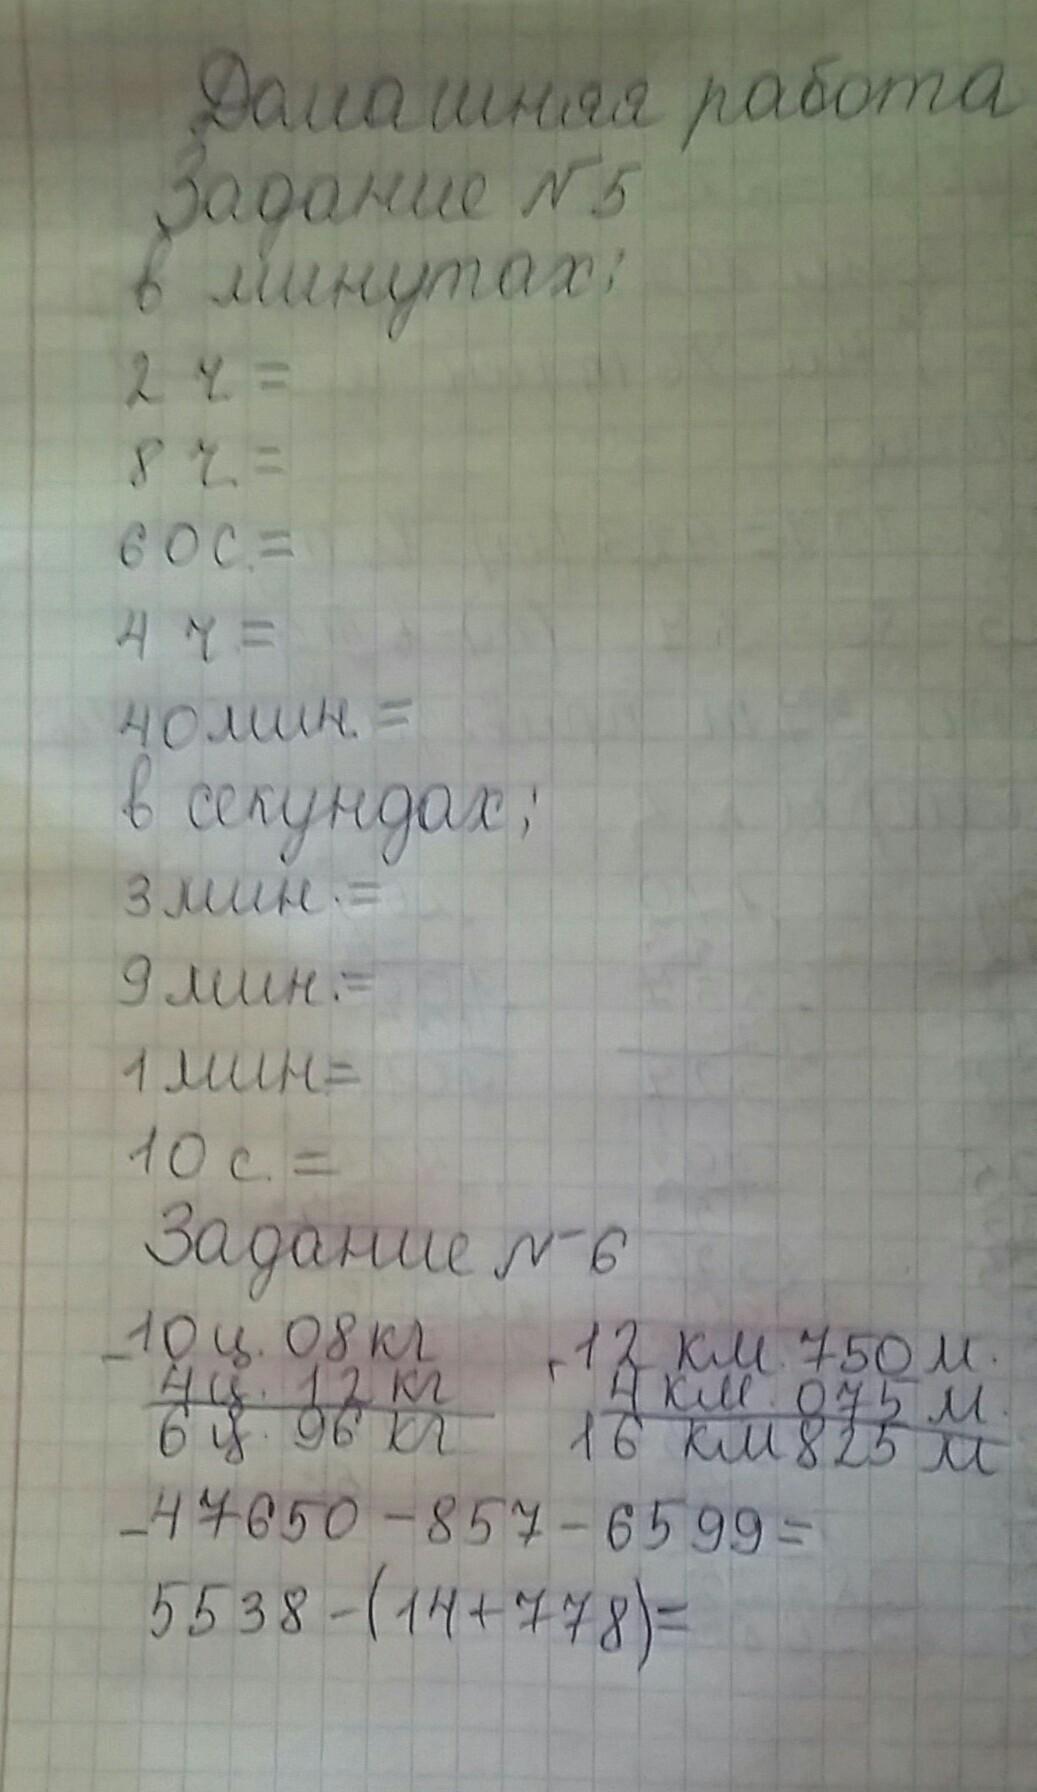 Домашняя работа
Задание №5
в минутах:
2 ч.=
8 ч.=
60с.=
4 ч.=
40мин.=
в секундах;
3мин.=
9мин.=
1мин=
10 с.=
Задание №6
-10ц. 08кг +12 км. 750 м.
4ц. 12 кг 4 км. 075 м.
6 ц. 96 кг 16 км 825 м
-47650-857-6599=
5538-(14+778)=